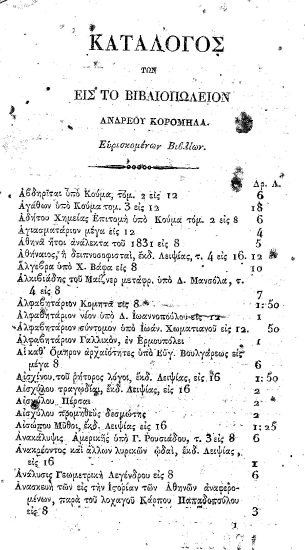 ΚΑΤΑΛΟΓΟΣ
ΤΩΝ
ΕΙΣ ΤΟ ΒΙΒΛΙΟΠΩΛΕΙΟΝ
ΑΝΔΡΕΟΥ ΚΟΡΟΜΗΛΑ.
Εὑρισκομένων Βιβλίων.
Δρ. Λ.
Ἀβδηρῖται ὑπὸ Κούμα, τόμ. 2 εἰς 12 6
Ἀγάθων ὑπὸ Κούμα τομ. 3 εἰς 12 18
Ἀδήτου Χημείας Ἐπιτομὴ ὑπὸ Κούμα τόμ. 2 εἰς 8 6
Ἁγιασματάριον μέγα εἰς 12 4
Ἀθηνᾶ ἤτοι ἀνάλεκτα τοῦ 1831 εἰς 8 5
Ἀθήναιος, ἢ δειπνοσοφισταὶ, ἐκδ. Λειψίας, τ. 4 εἰς 16. 12
Ἄλγεβρα ὑπὸ Χ. Βάφα εἰς 8 10
Ἀλκιβιάδης τοῦ Μαίζνερ μεταφρ. ὑπὸ Δ. Μανσόλα, τ.
4 εἰς 8 7
Ἀλφαβητάριον Κομητᾶ εἰς 8 1:50
Ἀλφαβητάριον νέον ὑπὸ Λ. Ἰωαννοπούλου εἰς 12 1
Ἀλφαβητάριον σύντομον ὑπὸ Ἰωάν. Χωματιανοῦ εἰς 12. 50
Ἀλφαβητάριον Γαλλικὸν, ἐν Ἑρμουπόλει 1
Αἱ καθ' Ὅμηρον ἀρχαιότητες ὑπὸ Εὐγ. Βουλγάρεως εἰς
μέγα 8 6
Αἰσχίνου τοῦ ῥήτορος λόγοι, ἐκδ. Λειψίας, εἰς 16 1:50
Αἰσχύλου τραγῳδίαι, ἐκδ. Λειψίας, εἰς 16 2
Αἰσχύλου Πέρσαι 2
Αἰσχύλου προμηθεὺς δεσμώτης 2
Αἰσώπου Μῦθοι, ἐκδ. Λειψίας εἰς 16 1:25
Ἀνακάλυψις Ἀμερικῆς ὑπὸ Γ. Ρουσιάδου, τ. 3 εἰς 8 6
Ἀνακρέοντος καὶ ἄλλων λυρικῶν ᾠδαὶ, ἐκδ. Λειψίας,
εἰς 16 1
Ἀνάλυσις Γεωμετρικὴ Λεγένδρου εἰς 8 6
Ἀνασκευὴ τῶν εἰς τὴν Ἱστορίαν τῶν Ἀθηνῶν ἀναφερο-
μένων, παρὰ τοῦ λοχαγοῦ Κάρπου Παπαδοπούλου
εἰς 8 3
1